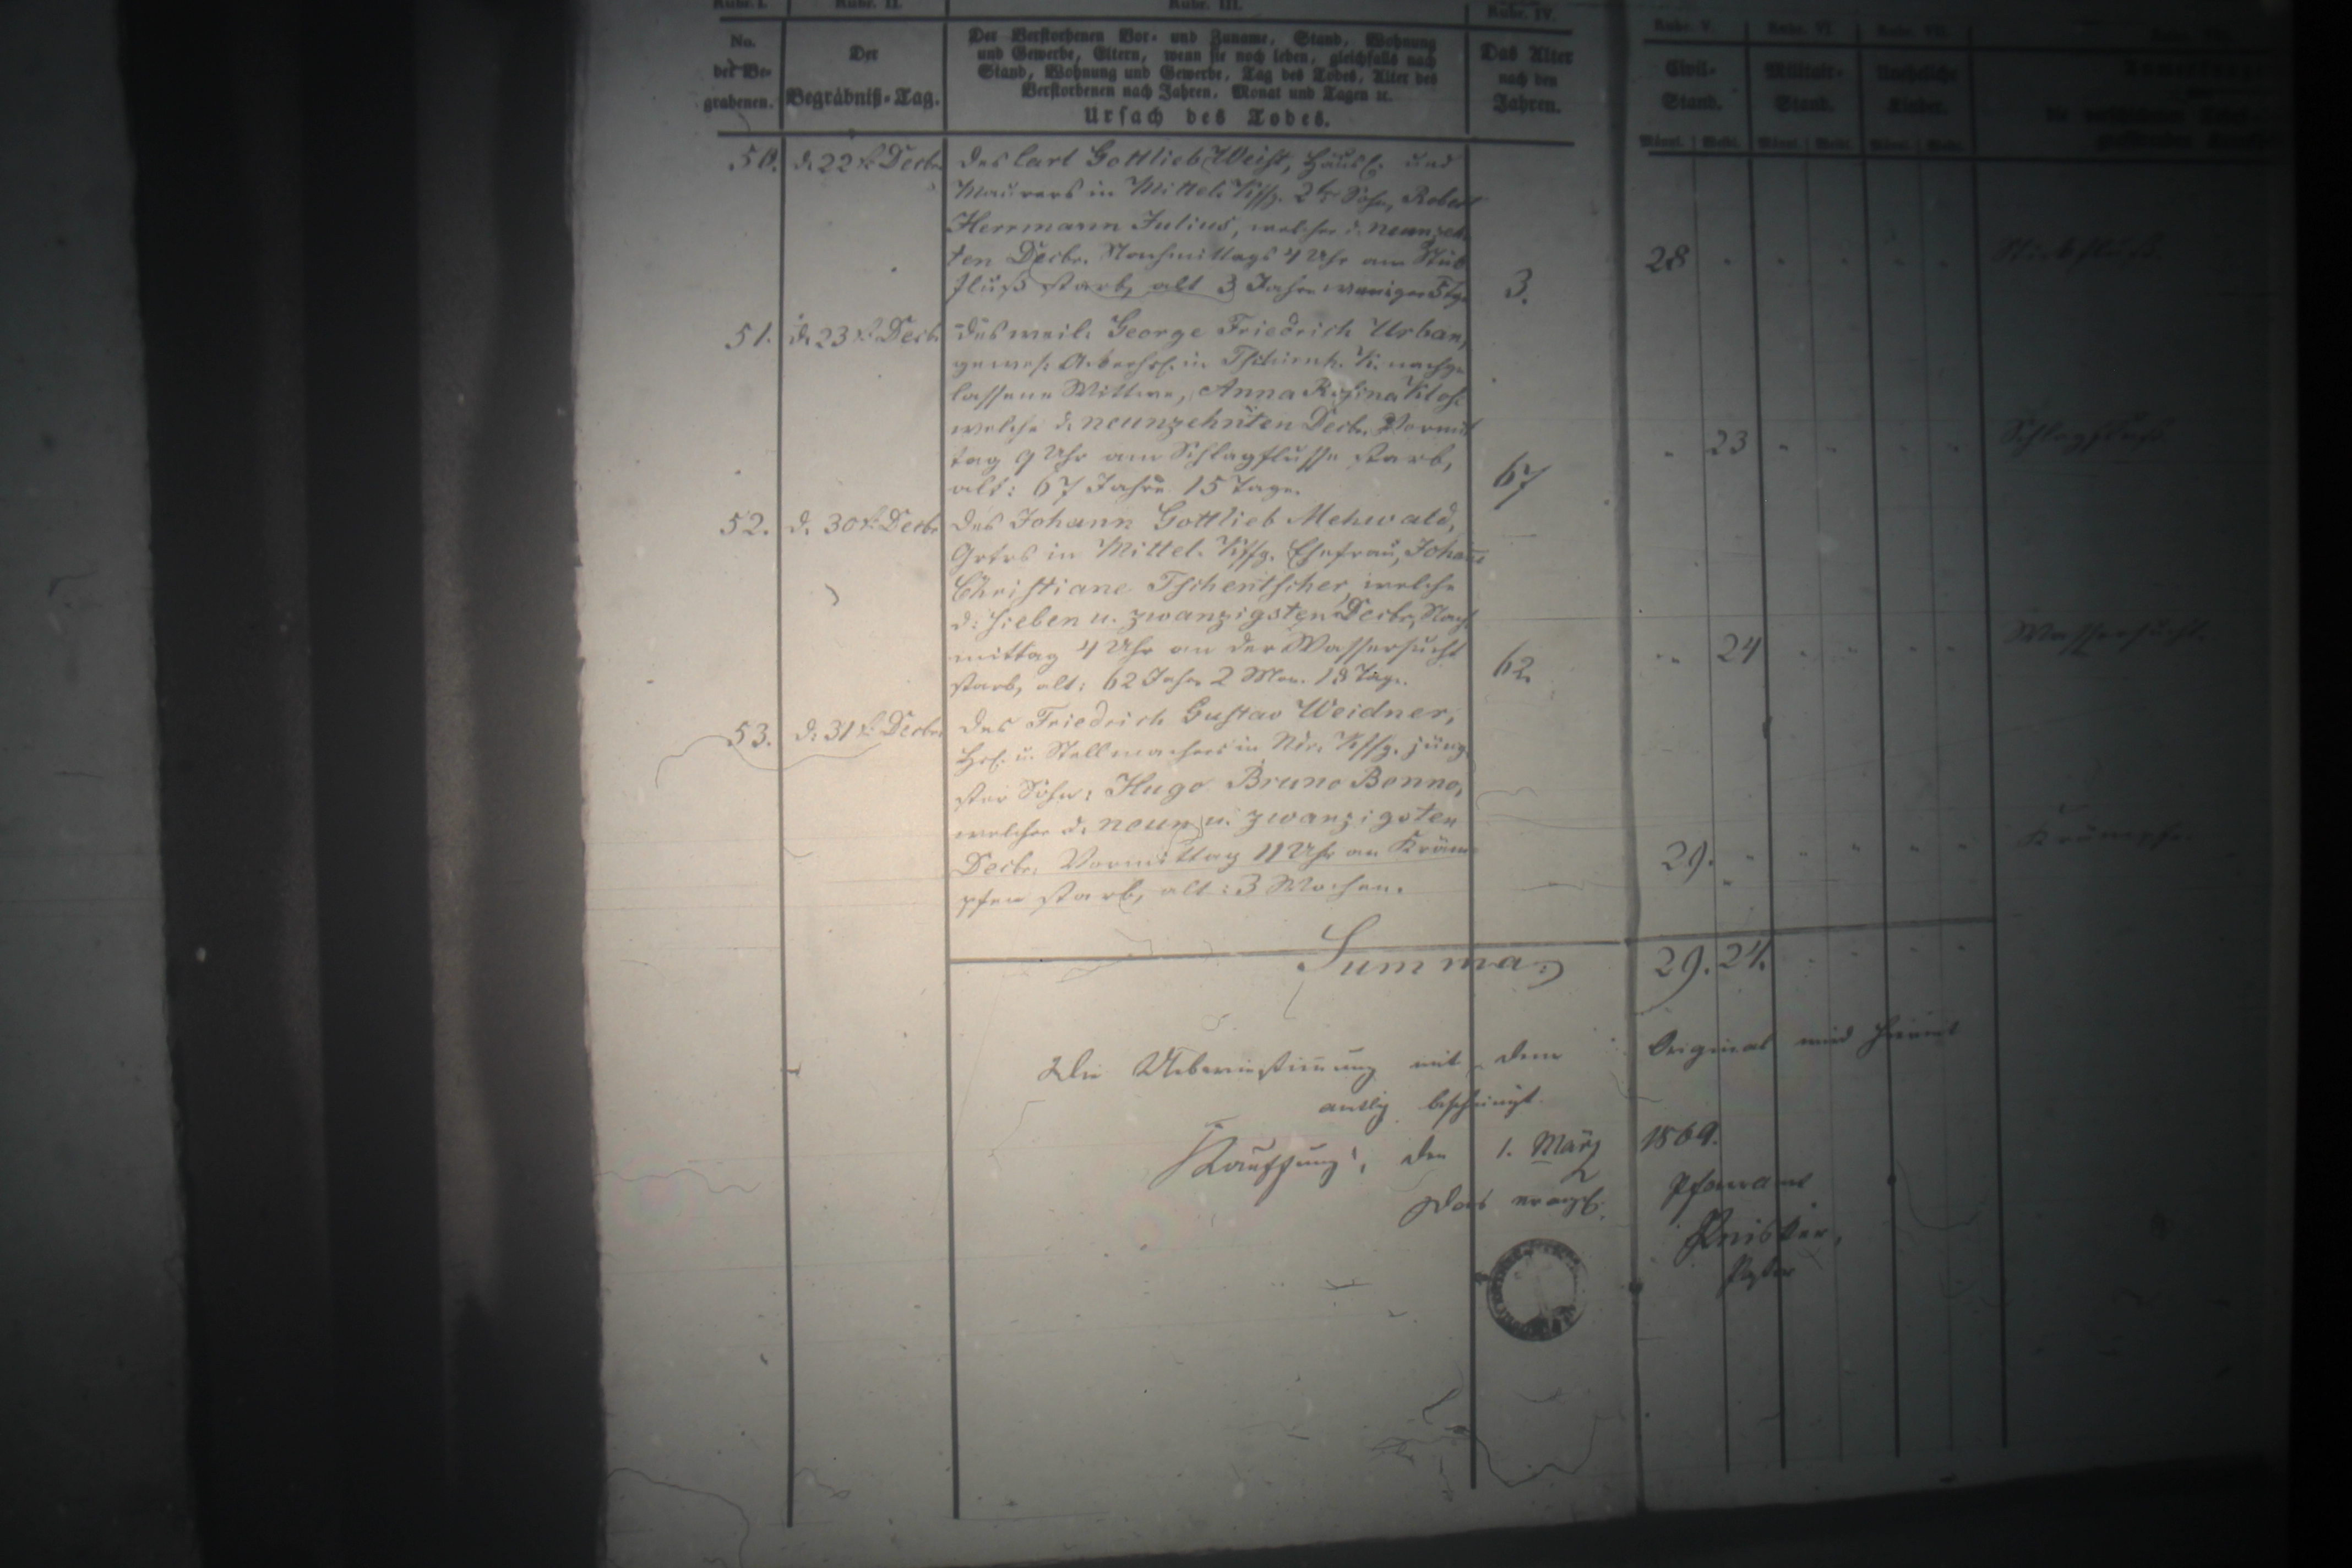 Rubr. I. Rubr. II. Rubr. III. Rubr. IV. Rubr. V. Rubr. VI. Rubr. VII.
No. der Be- grabenen.
Der Begräbniß-Tag.
Der Verstorbenen Vor- und Zuname, Stand, Wohnung
und Gewerbe, Eltern, wenn sie noch leben, gleichfalls nach
Stand, Wohnung und Gewerbe, Tag des Todes, Alter des
Verstorbenen nach Jahren, Monat und Tagen ꝛc.
Ursach des Todes.
Das Alter nach den Jahren.
Civil- Stand.
Militair- Stand.
Uneheliche Kinder.
50. d. 22t. Decbr. Des Carl Gottlieb Weist, Häusl. und
Maurers in Mittel. Kffg. 2tr. Sohn, Robert
Herrmann Julius, welcher d. neunzehn
ten Decbr. Nachmittags 4 Uhr am Stick
fluß starb, alt 3 Jahre weniger 5 Tg. 3. 28 Stickfluß.
51. d. 23t. Decb. Des weil. George Friedrich Urban,
gewes. in Tschirnh. K. nachge
lassene Wittwe, Anna Rosina Klose
welche d. neunzehnten Decbr. Vormit
tag 9 Uhr am Schlagflusse starb,
alt: 67 Jahre 15 Tage. 67 23 Schlagfluß.
52. d. 30t. Decbr. Des Johann Gottlieb Mehwald,
Grtrs in Mittel. Kffg. Ehefrau, Johañe
Christiane Tschentscher, welche
d. sieben u. zwanzigsten Decbr. Nach
mittag 4 Uhr an der Wassersucht
starb, alt: 62 Jahr 2 Mon. 18 Tage. 62. 24 Wassersucht.
53. d. 31t. Decbr. Des Friedrich Gustav Weidner,
Hsl. u. Stellmachers in Ndr. Kffg. jüng
ster Sohn: Hugo Bruno Benno,
welcher d. neun u. zwanzigsten
Decbr. Vormittag 11 Uhr an Kräm
pfen starb, alt: 3 Wochen. 29. Krämpfe.
Summa: 29. 24.
Die Uebereinstim̃ung mit dem Original wird hiermit
amtlich bescheinigt.
Kauffung, den 1. März 1869.
Das evangel. Pfarramt
Pastor